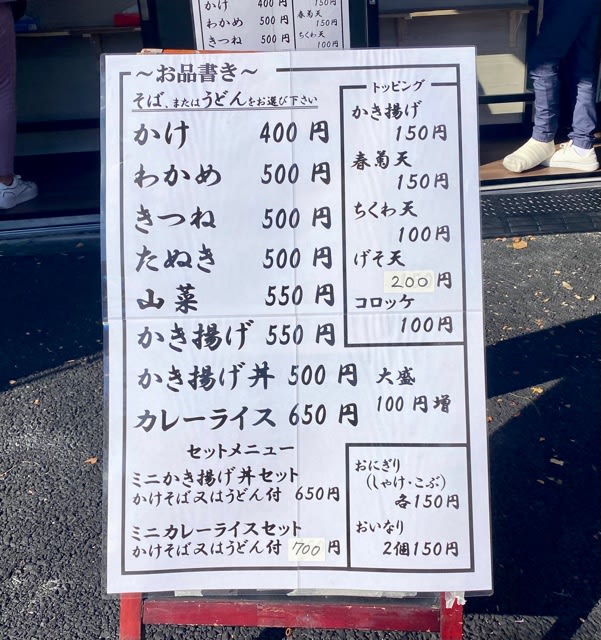 かけ 400円
わかめ 500円
きつね 500円
150円
春菊天
150円
ちくわ天
100円
～お品書き～
そば、またはうどんをお選び下さい
かけ 400円
わかめ 500円
きつね 500円
たぬき 500円
山菜 550円
かき揚げ 550円
かき揚げ丼 500円
カレーライス 650円
大盛
100円増
トッピング
かき揚げ
150円
春菊天
150円
ちくわ天
100円
げそ天
200円
コロッケ
100円
セットメニュー
ミニかき揚げ丼セット
かけそば又はうどん付 650円
ミニカレーライスセット
かけそば又はうどん付 700円
おにぎり
(しゃけ・こぶ)
各150円
おいなり
2個150円